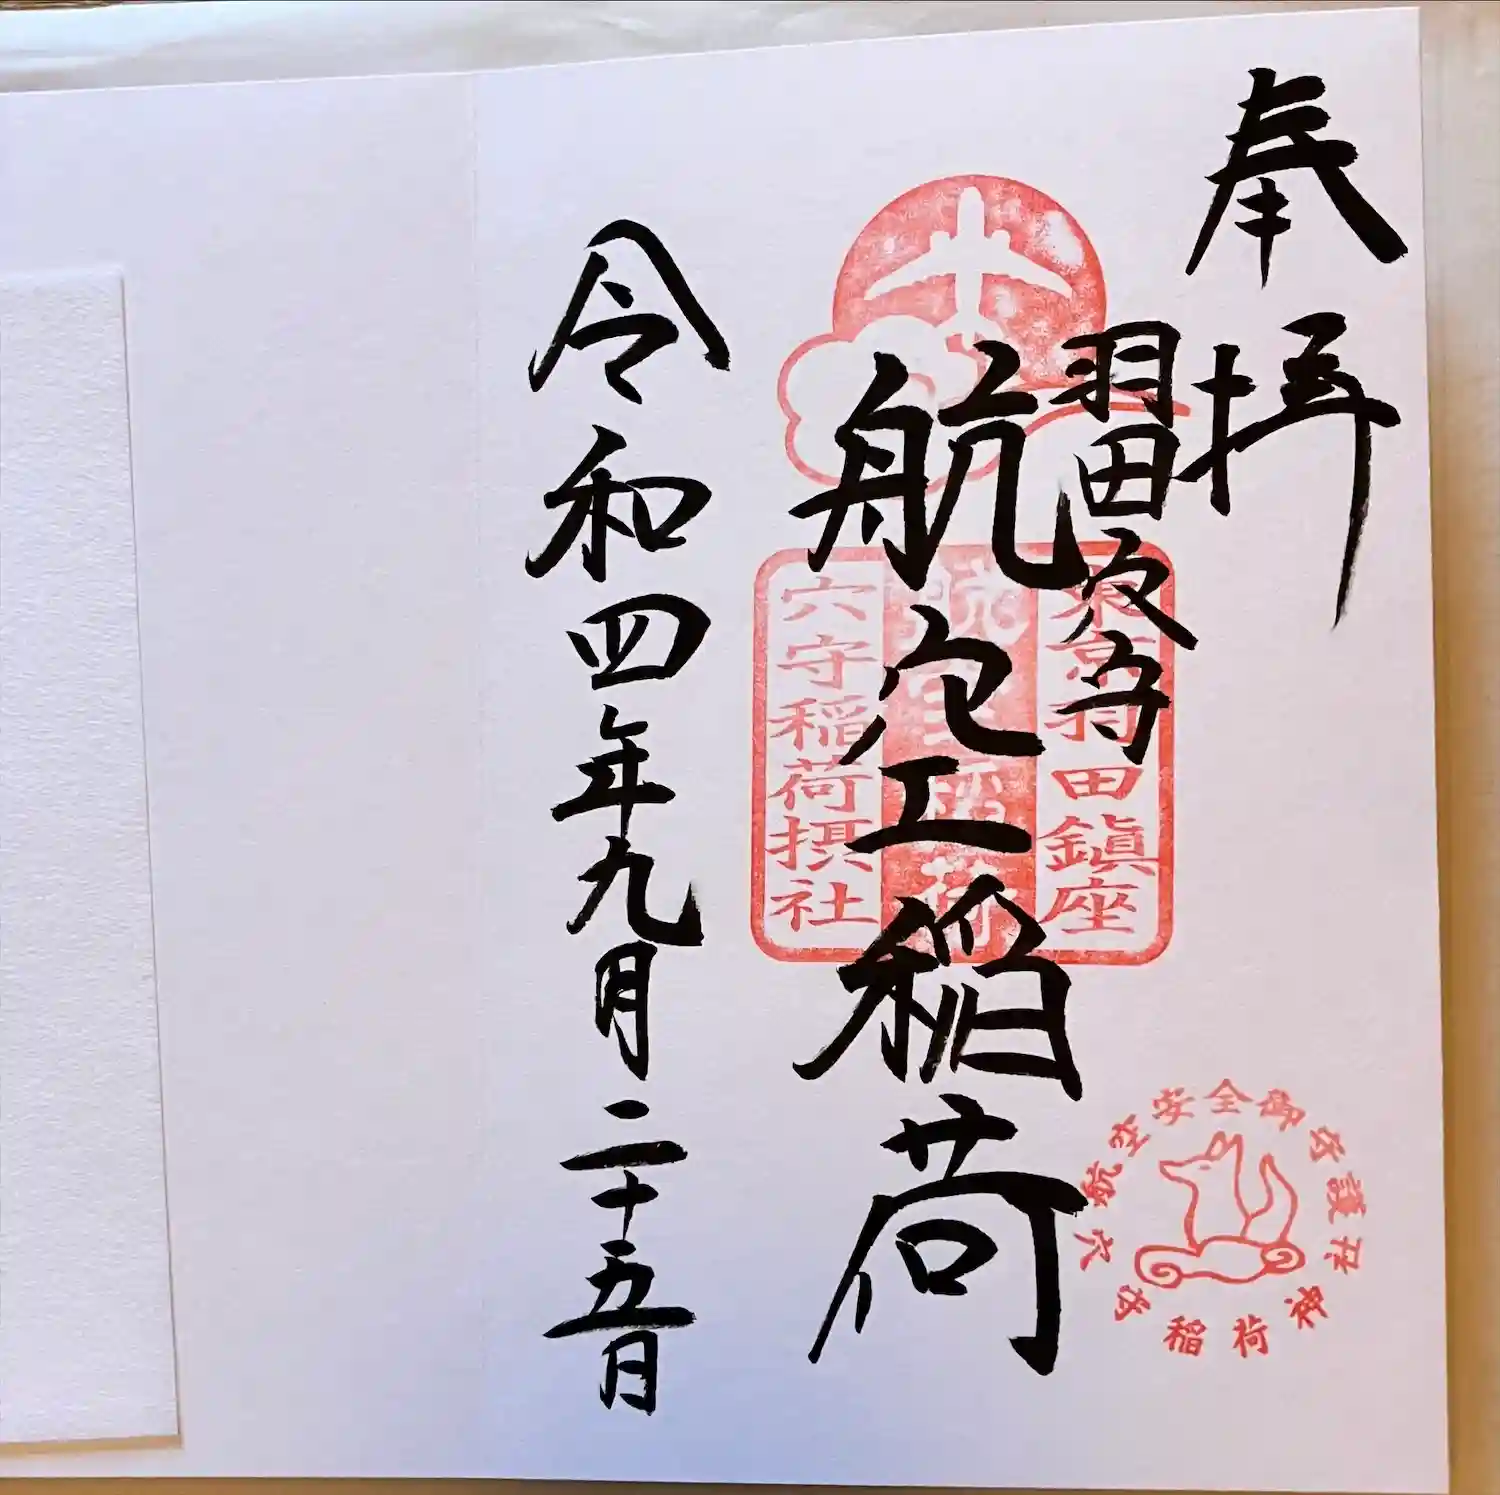 奉拝
羽田穴守
航空稲荷
令和四年九月二十五日
東京羽田鎮座
航空稲荷
穴守稲荷摂社
航空安全御守護
穴守稲荷神社